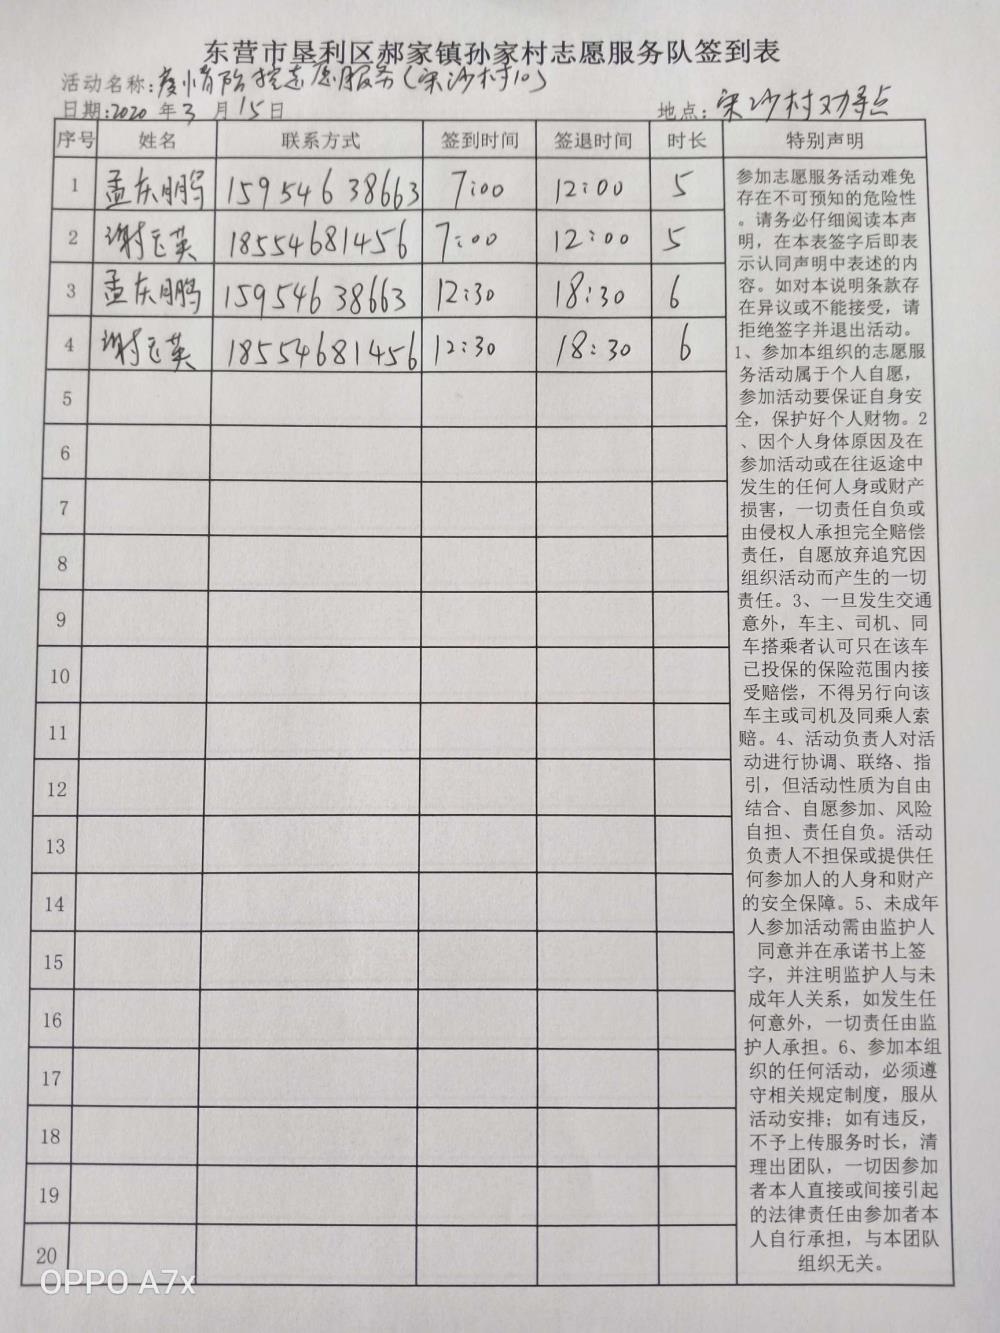 东营市垦利区郝家镇孙家村志愿服务队签到表
活动名称:疫情防控志愿服务(宋沙村10)
日期:2020 年 3 月 15 日 地点:宋沙村劝导点
序号 姓名 联系方式 签到时间 签退时间 时长 特别声明
1 孟庆鹏 15954638663 7:00 12:00 5
2 谢玉英 18554681456 7:00 12:00 5
3 孟庆鹏 15954638663 12:30 18:30 6
4 谢玉英 18554681456 12:30 18:30 6
5
6
7
8
9
10
11
12
13
14
15
16
17
18
19
20
参加志愿服务活动难免
存在不可预知的危险性
。请务必仔细阅读本声
明，在本表签字后即表
示认同声明中表述的内
容。如对本说明条款存
在异议或不能接受，请
拒绝签字并退出活动。
1、参加本组织的志愿服
务活动属于个人自愿，
参加活动要保证自身安
全，保护好个人财物。2
、因个人身体原因及在
参加活动或在往返途中
发生的任何人身或财产
损害，一切责任自负或
由侵权人承担完全赔偿
责任，自愿放弃追究因
组织活动而产生的一切
责任。3、一旦发生交通
意外，车主、司机、同
车搭乘者认可只在该车
已投保的保险范围内接
受赔偿，不得另行向该
车主或司机及同乘人索
赔。4、活动负责人对活
动进行协调、联络、指
引，但活动性质为自由
结合、自愿参加、风险
自担、责任自负。活动
负责人不担保或提供任
何参加人的人身和财产
的安全保障。5、未成年
人参加活动需由监护人
同意并在承诺书上签
字，并注明监护人与未
成年人关系，如发生任
何意外，一切责任由监
护人承担。6、参加本组
织的任何活动，必须遵
守相关规定制度，服从
活动安排；如有违反，
不予上传服务时长，清
理出团队，一切因参加
者本人直接或间接引起
的法律责任由参加者本
人自行承担，与本团队
组织无关。
OPPO A7x